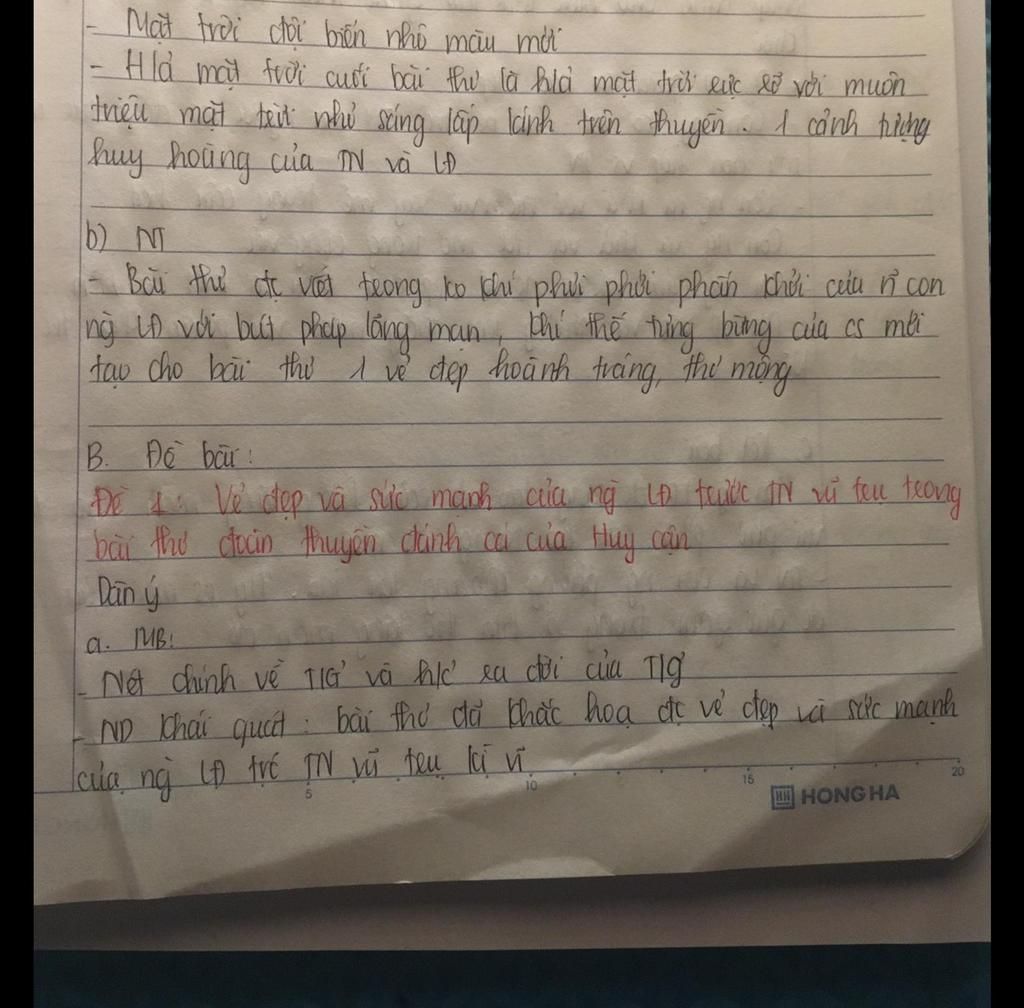 - Mặt trời đội biển nhô màu mới
- H/ả mặt trời cuối bài thơ là h/ả mặt trời rực rỡ với muôn
triệu mặt trời nhỏ sáng lấp lánh trên thuyền. 1 cảnh tượng
huy hoàng của TN và LĐ
b) NT
- Bài thơ đc viết trong ko khí phơi phới phấn khởi của n~ con
ng LĐ với bút pháp lãng mạn, khí thế tưng bừng của cs mới
tạo cho bài thơ 1 vẻ đẹp hoành tráng, thơ mộng
B. Đề bài:
Đề 1: Vẻ đẹp và sức mạnh của ng LĐ trước TN vũ trụ trong
bài thơ đoàn thuyền đánh cá của Huy cận
Dàn ý
a. MB:
- Nét chính về T/G và h/c ra đời của T/g
- ND khái quát: bài thơ đã khắc hoạ đc vẻ đẹp và sức mạnh
của ng LĐ trc TN vũ trụ kì vĩ
5 10 15 20
HH HONG HA